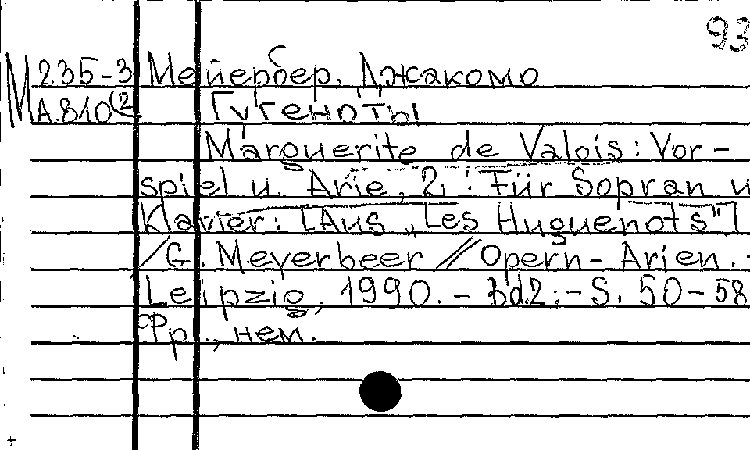 93
М 235-3 Мейербер, Джакомо
А.810(2 Гугеноты
Marguerite de Valois: Vor-
spiel u. Arie, 2: Für Sopran u
Klavier: [Aus „Les Huguenots"]
/G. Meyerbeer // Opern-Arien.-
Leipzig, 1990. - Bd2.-S. 50-58
Фр., нем.